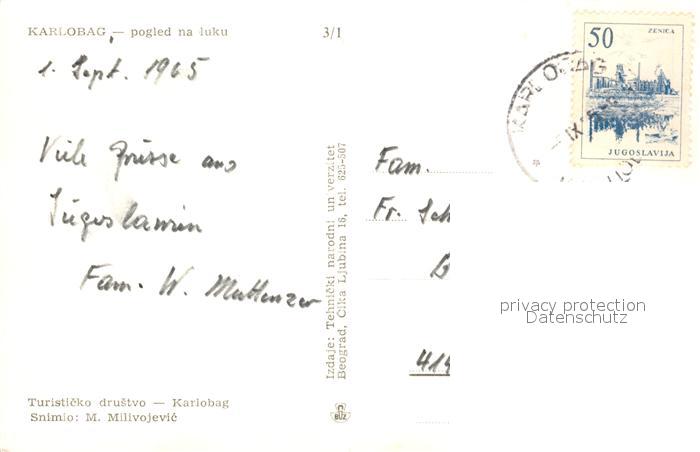 KARLOBAG, — pogled na luku 3/1
1. Sept. 1965
Viele Grüsse aus
Jugoslawien
Fam. W. Muttenzer
Turističko društvo — Karlobag
Snimio: M. Milivojević
Izdaje: Tehnički narodni univerzitet
Beograd, Cika Ljubina 18, tel. 625-507
BUZ
50
ZENICA
JUGOSLAVIJA
KARLOBAG
IX
Fam.
Fr. Sch
414
privacy protection
Datenschutz